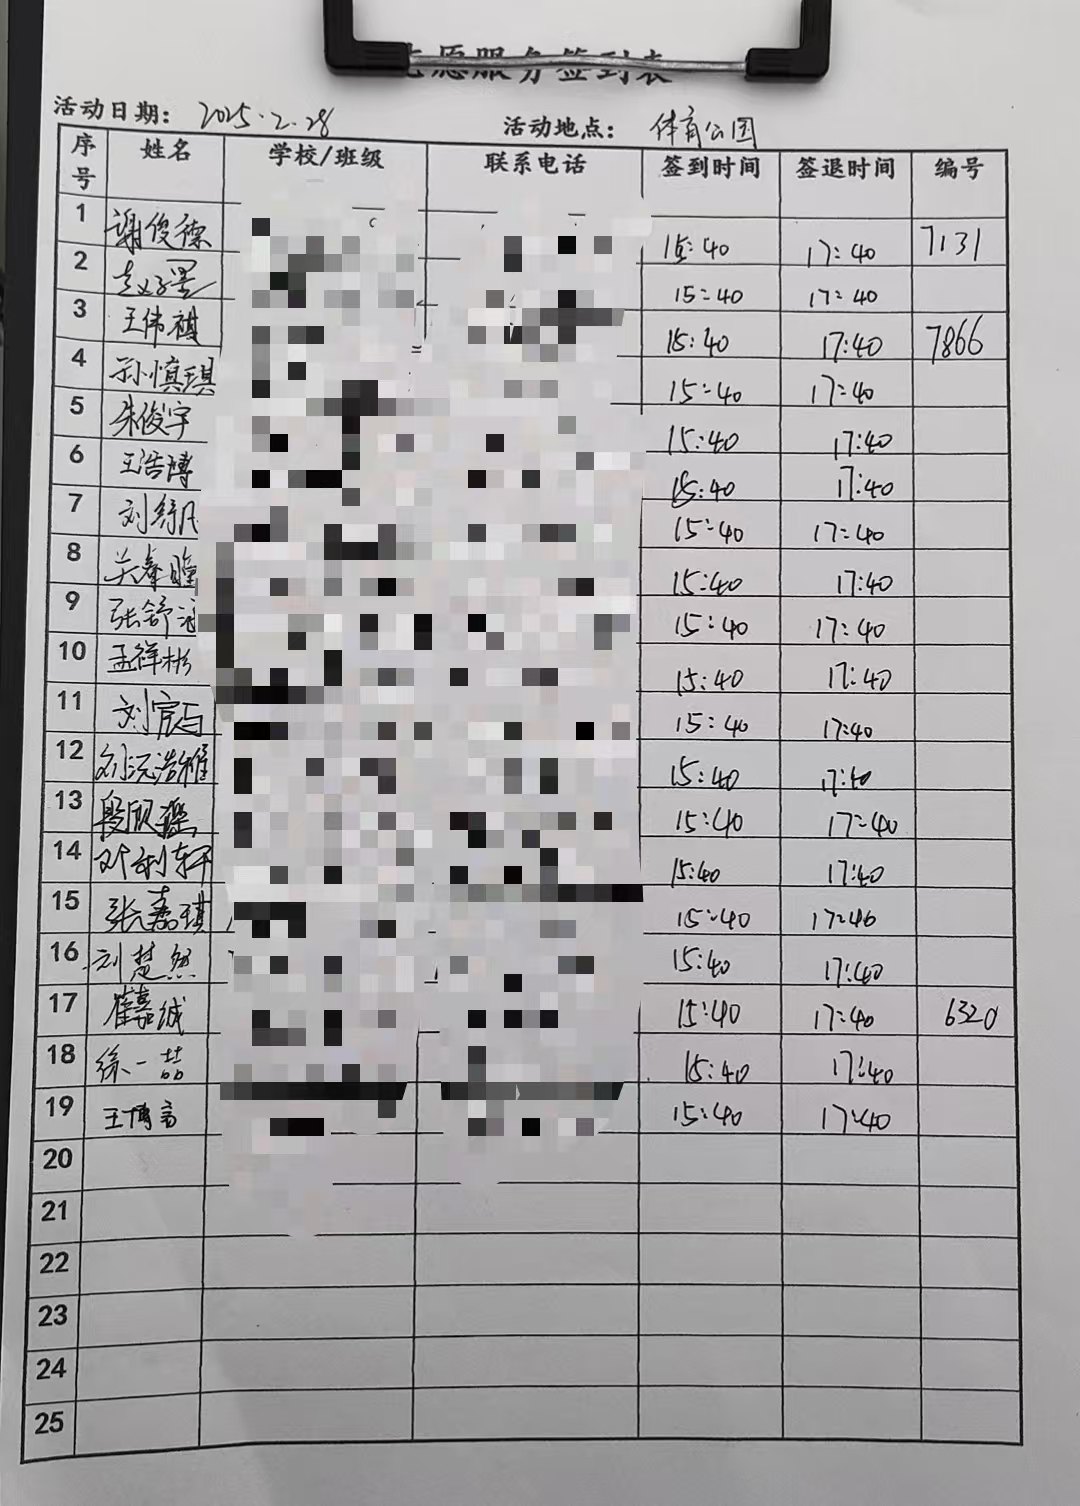 志愿服务签到表
活动日期： 2025.2.28 活动地点： 体育公园
序号 姓名 学校/班级 联系电话 签到时间 签退时间 编号
1 谢俊德 15:40 17:40 7131
2 15:40 17:40
3 王伟祺 15:40 17:40 7866
4 孙慎琪 15:40 17:40
5 朱俊宇 15:40 17:40
6 王浩博 15:40 17:40
7 刘 15:40 17:40
8 15:40 17:40
9 张舒涵 15:40 17:40
10 孟祥彬 15:40 17:40
11 刘宸 15:40 17:40
12 刘沅浩 15:40 17:40
13 段欣 15:40 17:40
14 15:40 17:40
15 张嘉琪 15:40 17:40
16 刘楚然 15:40 17:40
17 崔嘉诚 15:40 17:40 6320
18 徐一喆 15:40 17:40
19 王博言 15:40 17:40
20
21
22
23
24
25